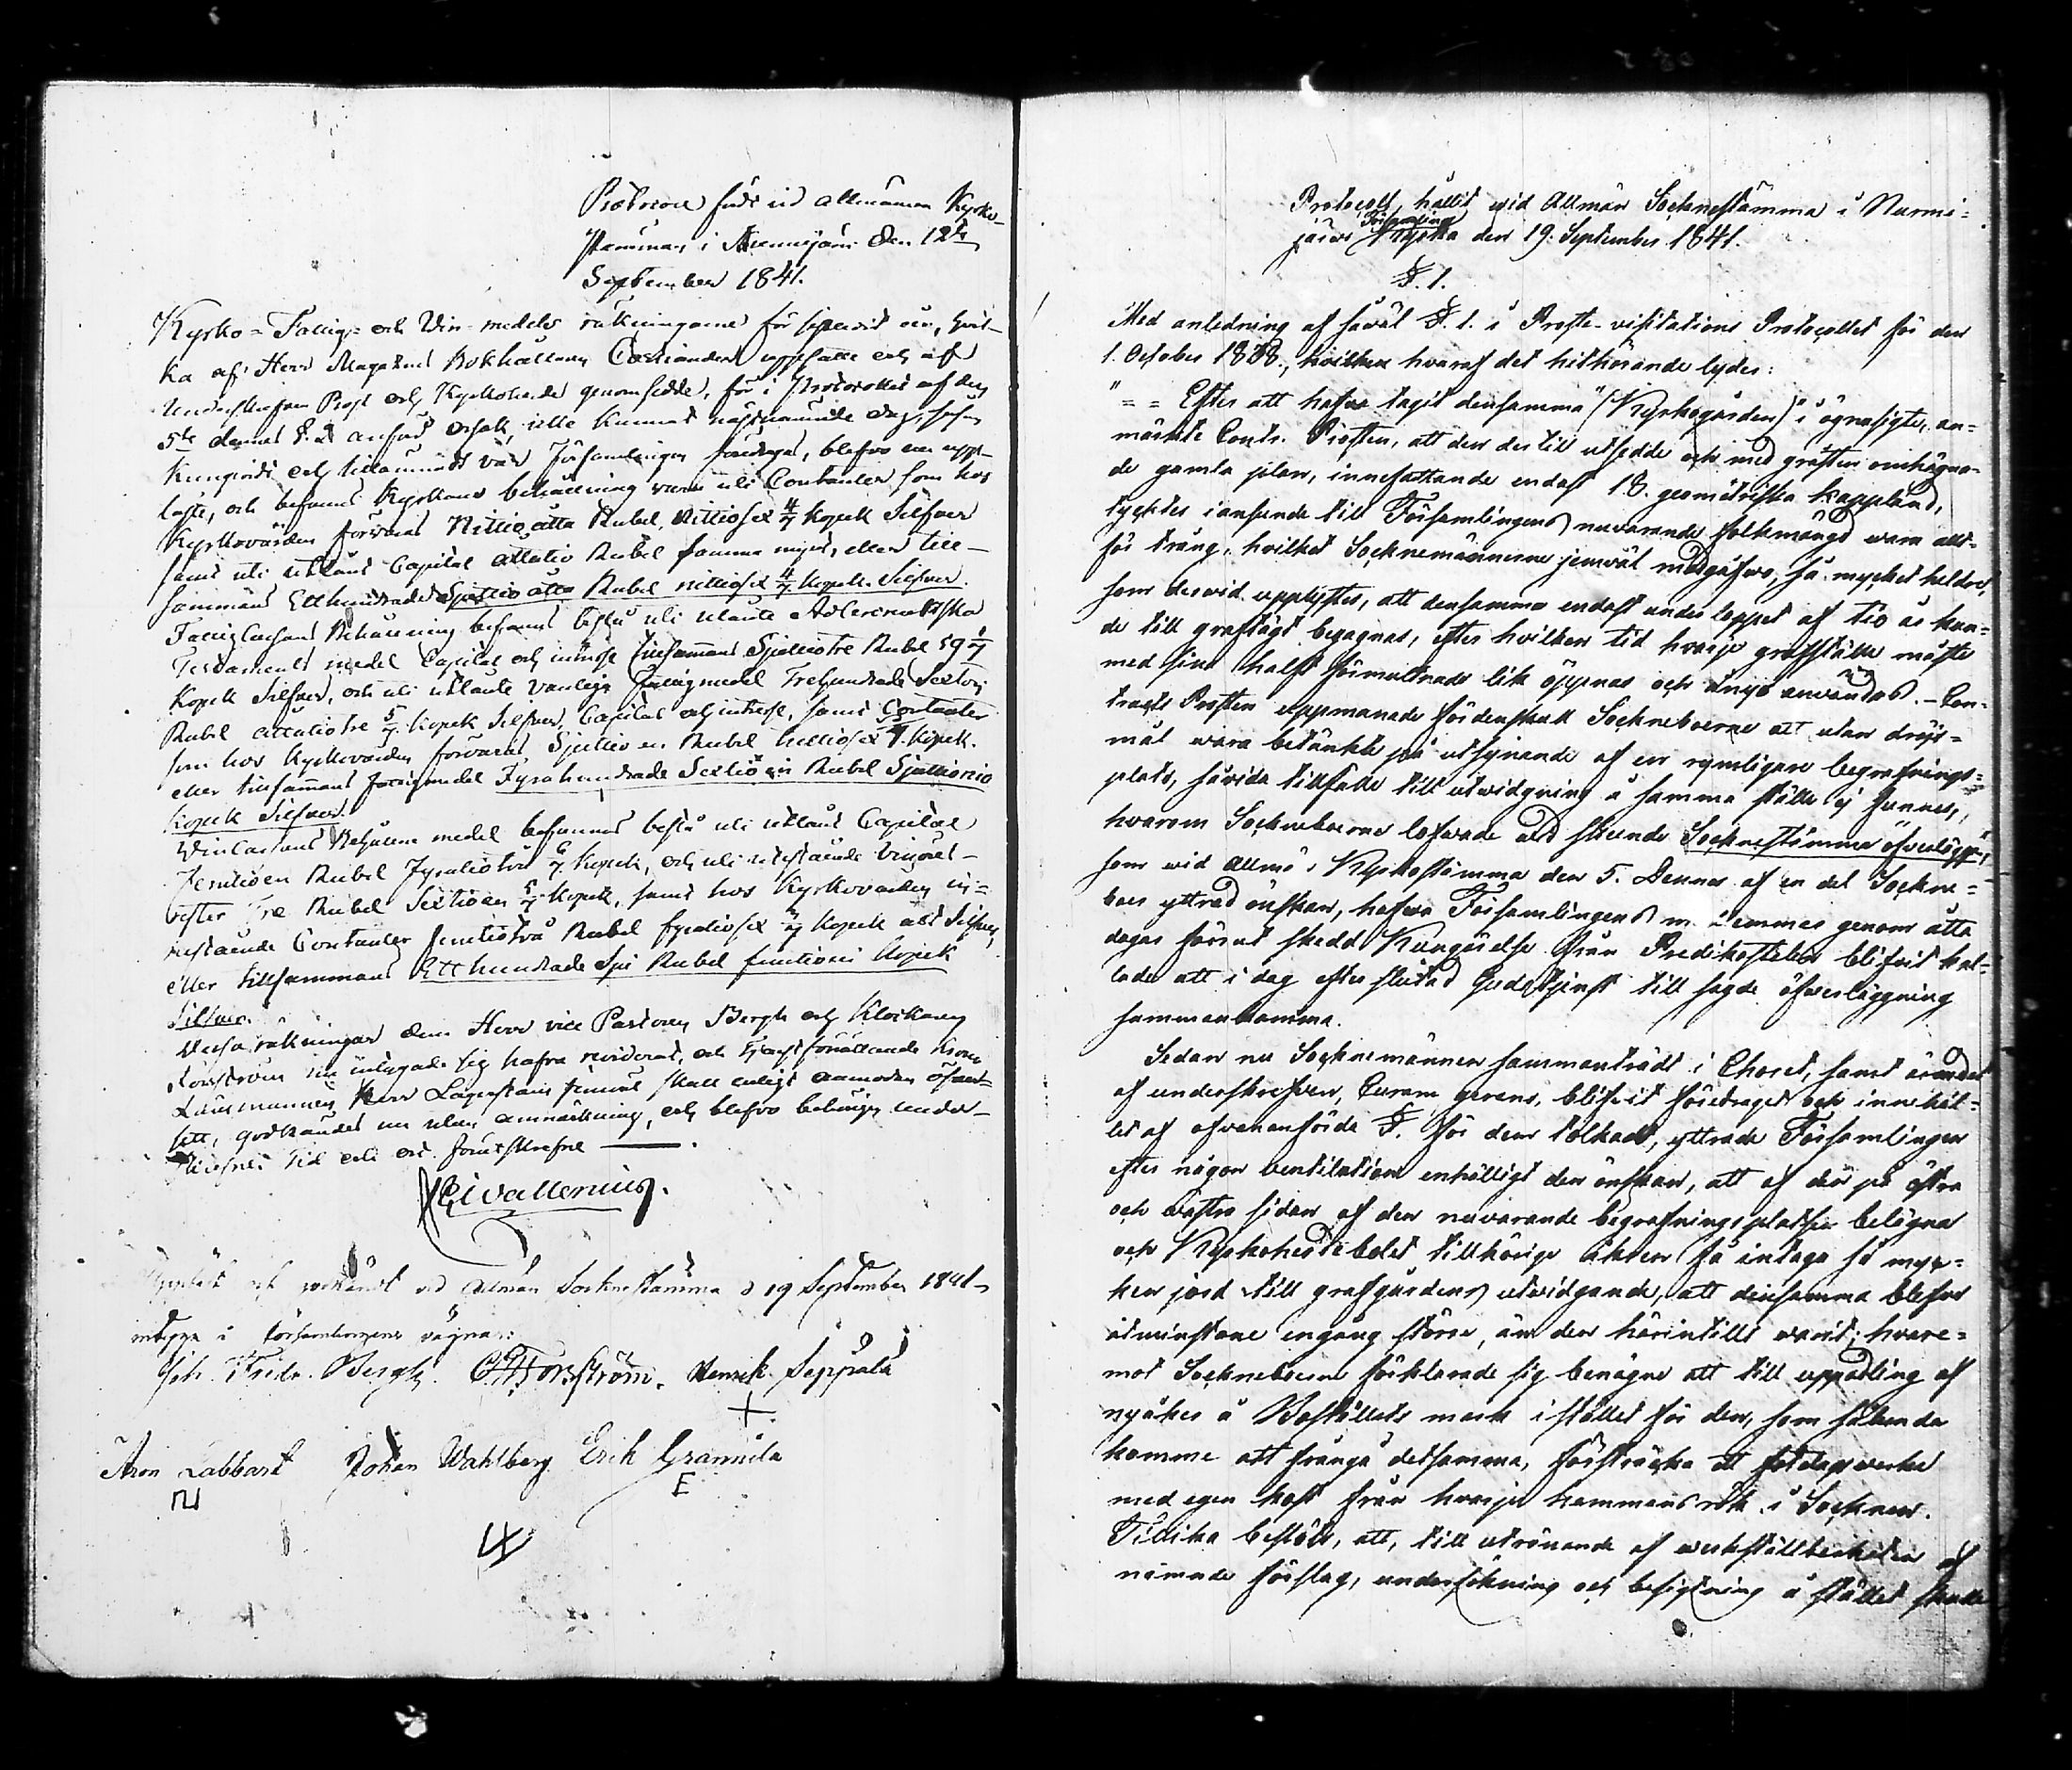 Protocoll fördt vid allmänna Kyrko-
stämman i Nurmijärvi den 12te
September 1841.
Kyrko- Fattig- och Vin-medels räkningarne för sistledit år, hvil-
ka af Herr Magazins Bokhållaren Castrander uppsatte och af
Underskrefven Prost och Kyrkoherde genomsedde, för i Protocollet af den
5te dennes anförd orsak, icke kunnat näst
kungjordt och tillämnadt var Församlingen föredragas, blefvo nu upp-
läste, och befanns Kyrkans behållning vara uti Contanter, som hos
Kyrkovärden förvaras Nittio åtta Rubel Nittiosex 4/7 Kopek Silfver
samt uti utlånt Capital åttatio Rubel samma mynt, eller till-
sammans Etthundrade Sjuttio åtta Rubel nittiosex 4/7 Kopek Silfver.
Fattig Cassans Behållning befanns bestå uti utlånte
Testaments medel Capital och intresse tillsammans Sjuttiotre Rubel 59 1/7
Kopek Silfver, och uti utlånte vanliga fattigmedel Trehundrade Sexton
Rubel åttatiotre 5/7 Kopek Silfver, Capital och intresse, samt Contanter
som hos Kyrkovärden förvaras, Sjuttio en Rubel Kopek.
eller tillsammans fattigmedel Fyrahundrade Sextio en Rubel Sjuttionio
Kopek Silfver.
Vin Cassans Behållna medel befannes bestå uti utlånt Capital
Femtioen Rubel Fyratiotvå 6/7 Kopek, och uti utestående Vin
rester Tre Rubel Sextioen 5/7 Kopek, samt hos Kyrkovärden in-
nestående Contanter femtiotvå Rubel fyratiosex Kopek allt Silfver,
eller tillsammans Ett hundrade Sju Rubel femtioni Kopek
Silfver.
Dessa räkningar dem Herr vice Pastoren Bergh och Klockaren
Forsström nu intygade sig hafva reviderat, och Tjenstförrättande Krono
Länsmannen Herr Lagerstam jemväl skall enligt anmodan öfver-
sett, godkändes nu utan anmärkning, och blefvo behörigen under-
skrefne. Tid och ort förutskrefne ———.
Wallenius.
Uppläst och godkändt vid allmän Socknestämma d 19 September 1841
intyga i Församlingens vägnar:
Joh. Fridr. Bergh. Forsström. Henrik Seppälä
Aron Labbart Johan Wahlberg Erik Grannila
E
Protocoll, hållit wid Allmän Socknestämma i Nurmi-
järwi Församlings Kyrka den 19. September 1841.
§. 1.
Med anledning af såväl §. 1. i Proste-visitations Protocollet för den
1. October 1838., hvilken hvaraf det hithörande lyder:
"= = Efter att hafva tagit densamma" (Kyrkogården) "i ögnasigte, an-
märkte Contr. Prosten, att den der till utsedde och med grafven omhägna-
de gamla plan, innefattande endast 18. geometriska kappland,
tycktes i anseende till Församlingens nuvarande folkmängd wara allt-
för trång, hvilket Socknemännerne jemväl medgåfvo, så mycket heldre,
som derwid upplystes, att densamma endast under loppet af tio år kun-
de till graflägt begagnas, efter hvilken tid hvarje grafställe måste
med sine halft förmultnade lik öppnas och ånyo användas. – Con-
tracts Prosten uppmanade fördenskull Sockneboerne att utan dröjs-
mål wara betänkte på utsynande af en rymligare begrafnings-
plats, såvida tillfälle till utwidgning å samma ställe ej funnes,
hvarom Sockneboerne lofwade att skeende Socknestämma öfverlägga",
som wid allmn Kyrkostämma den 5. Dennes af en del Sockne-
boer yttrad önskan, hafva Församlingens m. lemmar genom åtta
dagar förut skedd Kungörelse från Predikostolen blifvit kal-
lade att i dag efter slutad Gudstjenst till sagde öfverläggning
sammankomma.
Sedan nu Socknemännen sammanträdt i Choret, samt ärendet
af underskrefven, Curam gerens, blifvit föredraget och innehål-
let af ofvananförde §. för dem tolkadt, yttrade Församlingen
efter någon ventilation enhälligt den önskan, att af den på östra
och westra sidan af den nuvarande begrafningsplatsen belägna
och Kyrkoherdebolet tillhöriga åkern få intaga så myc-
ken jord till grafgårdens utwidgande, att densamma blefve
åtminstone engång större, än den härintills warit; hvare-
mot Sockneboerne förklarade sig benägne att till uppodling af
nyåker å Boställets mark i stället för den, som sålunda
komme att frångå detsamma, förstäcka ett fotdagswerke
med egen kost från hvarje hemmans rök i Socknen.
Tillika beslöts, att, till utrönande af werkställbarheten af
nämnde förslag, undersökning och besigtning å stället skulle